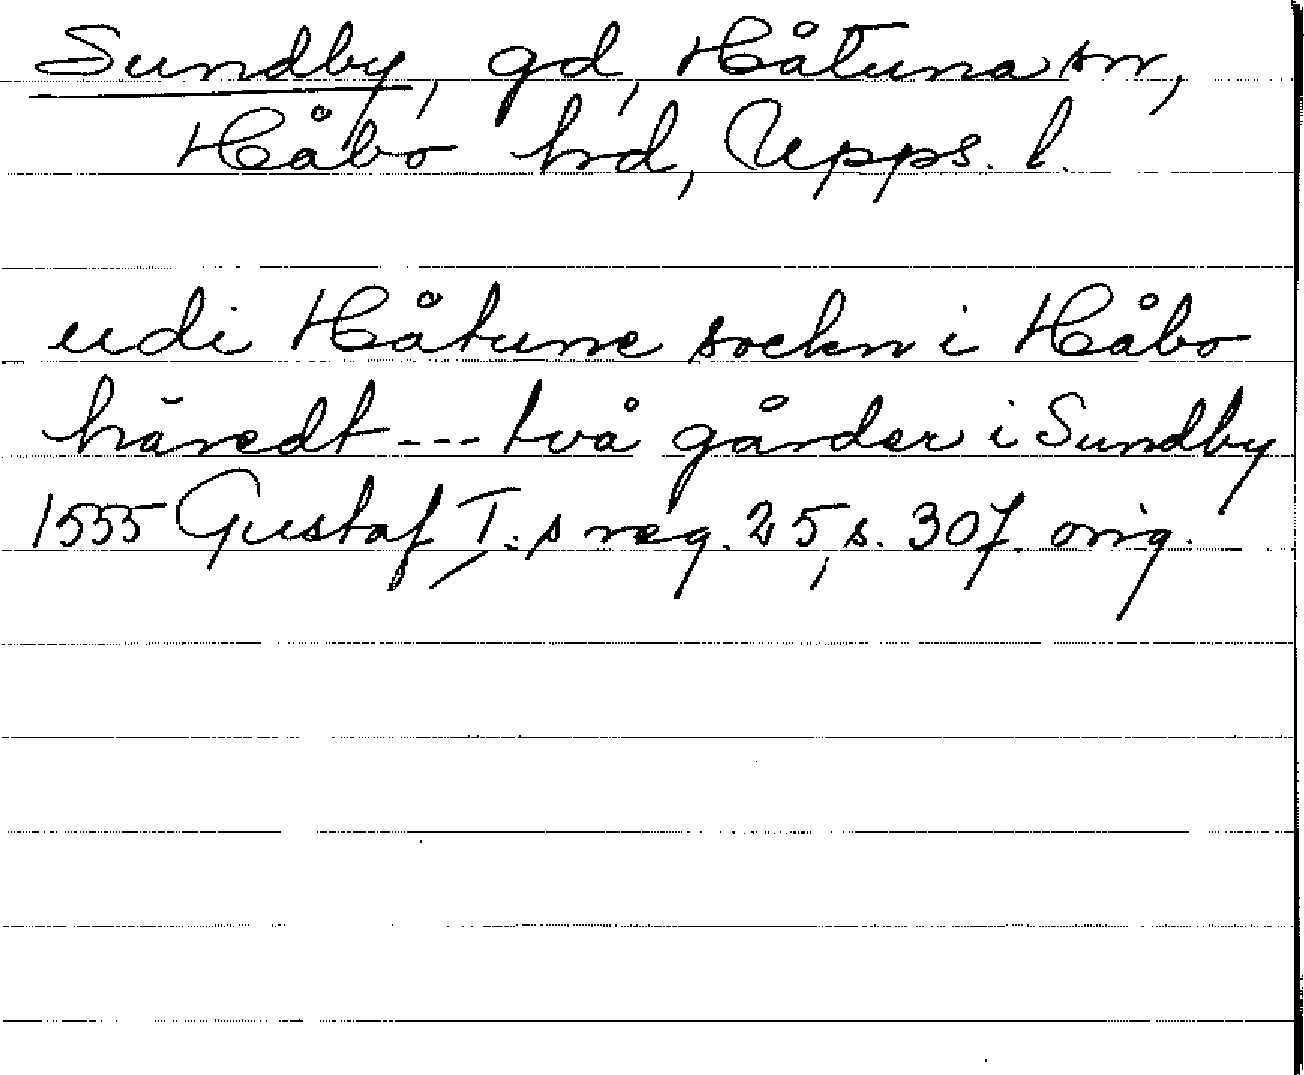 Sundby, gd, Håtuna sn,
Håbo hd, Upps. l.
udi Håtune sockn i Håbo
häredt --- två gårder i Sundby
1555 Gustaf I:s reg. 25, s. 307. orig.